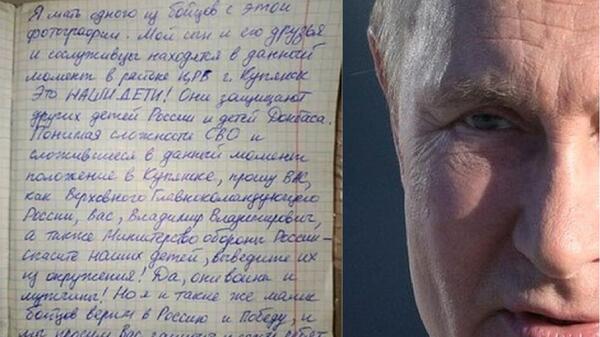 Я мать одного из бойцов с этой
фотографии. Мой сын и его друзья
и сослуживцы находятся в данный
момент в районе ЦРБ г. Купянск
Это НАШИ ДЕТИ! Они защищают
других детей России и детей Донбасса.
Понимая сложности СВО и
сложившиеся в данный момент
положение в Купянске, прошу ВАС,
как Верховного Главнокомандующего
России, Вас, Владимир Владимирович,
а также Министерство обороны России-
спасите наших детей, выведите их
из окружения! Да, они воины и
мужчины! Но я и такие же мамы
бойцов верим в Россию и Победу, и
мы просим Вас